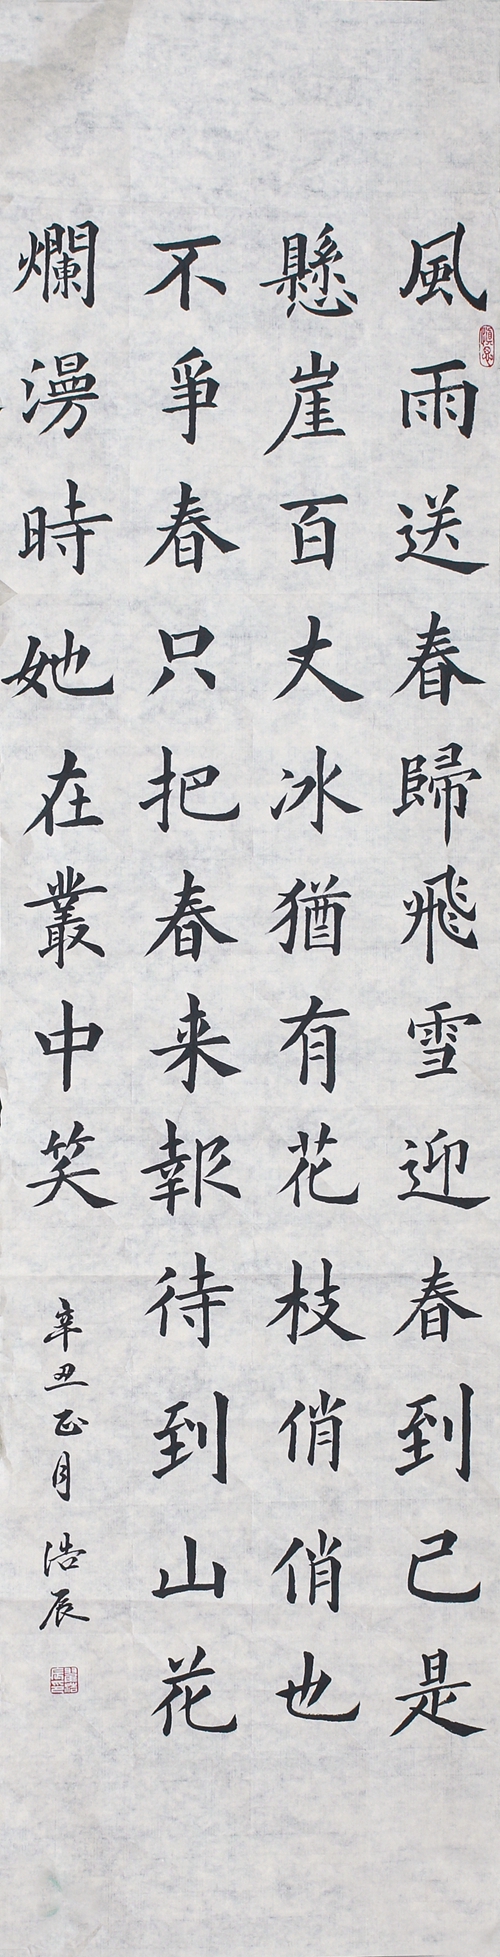 風雨送春歸飛雪迎春到已是
懸崖百丈冰猶有花枝俏俏也
不爭春只把春来報待到山花
爛漫時她在叢中笑
辛丑正月 浩辰